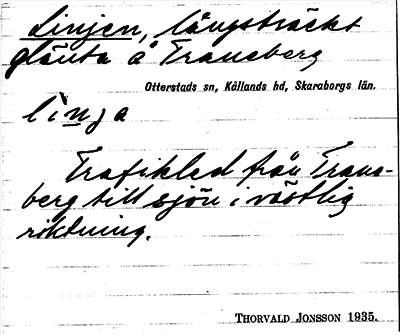 Linjen, långsträckt
glänta å Traneberg
Otterstads sn, Kållands hd, Skaraborgs län.
linja
Trafikled från Trane-
berg till sjön i västlig
riktning.
THORVALD JONSSON 1935.